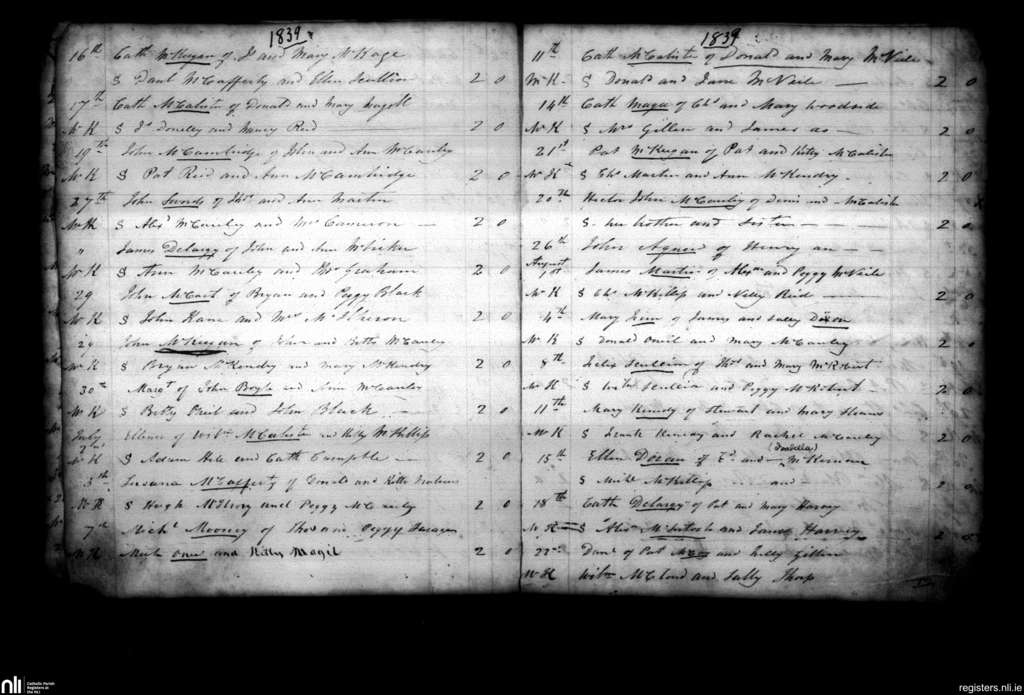 1839
16th Cath McKeegan of Js and Mary McKage
S Danl McCafferty and Ellen Scullion 2 0
17th Cath McCalister of Donald and Mary
McK S Js Donelly and Nancy Reid 2 0
19th John McCambridge of John and Ann McCauley
McK S Pat Reid and Ann McCambridge 2 0
27th John of Ths and Ann Martin
McK S Alexr McCauley and Mrs Cameron 2 0
" James Delargy of John and Ann
McK S Ann McCauley and Graham 2 0
29 John McCart of Bryan and Peggy Black
McK S John Kane and Mrs 2 0
29 John McKeegan of John and Betty McCauley
McK S Bryan McKendry and Mary McKendry 2 0
30th Margt of John Boyle and Ann McCauley
McK S Betty and John Black 2 0
July Ellenor of Willm McCalister and Kitty McPhillips
McK S Adam Hill and Cath Campble 2 0
5th Susana McCafferty of and
McK S Hugh McIlroy and Peggy McCauley 2 0
7th Michl Mooney of Thos and Peggy
McK Mick and Kitty Magil 2 0
1839
11th Cath McCalister of Donald and Mary McNeile
McK S Donald and Jane McNeile 2 0
14th Cath Magee of Chs and Mary Woodside
McK S Mrs Gillen and James as 2 0
21st Pat McKeegan of Pat and Kitty McCalister
McK S Chs Martin and Ann McKendry 2 0
20th Hector John McCauley of Denis and McCalister
S her brother and Sister 2 0
26th John Agnew of Henry an
August 1st James Martin of Alexr and Peggy McNeile
McK S Chs McKillop and Nelly Reid 2 0
4th Mary of James and Sally Dixon
McK S Donald Oneil and Mary McCauley 2 0
8th Felix Scullion of Thos and Mary McRobert
McK S Willm Scullion and Peggy McRobert 2 0
11th Mary Kenedy of Stewart and Mary
McK S Frank Kenedy and Rachel McCauley 2 0
(Isabella)
15th Ellen of Ed. and McKernan
S McKillop and 2 0
18th Cath Delargy of Pat and Mary Harvey
McK S Alexr McIntosh and James Harvey 2 0
22nd Danl of Pat and Nelly Gillen
McK Willm McCloud and Sally Sharp
nli
Catholic Parish
Registers at
the NLI
registers.nli.ie